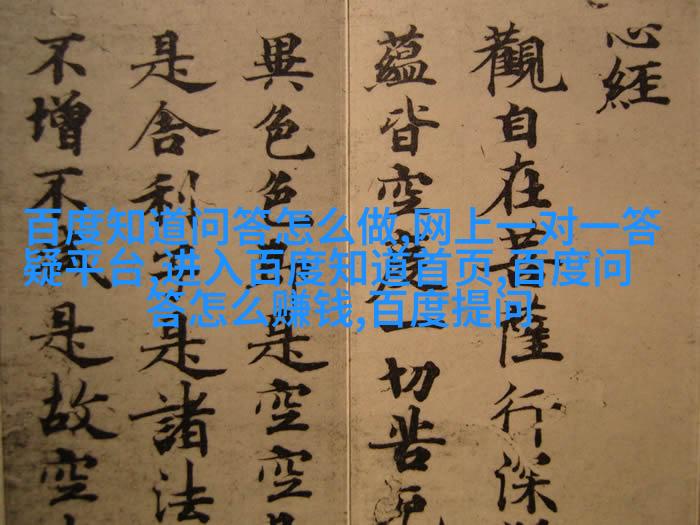 心經
觀自在菩薩行深
蘊皆空度一切苦厄
異色色即是空空
是舍利子是諸法
不增不減是故空
百度知道问答怎么做,网上一对一答
疑平台,进入百度知道首页,百度问
答怎么赚钱,百度提问